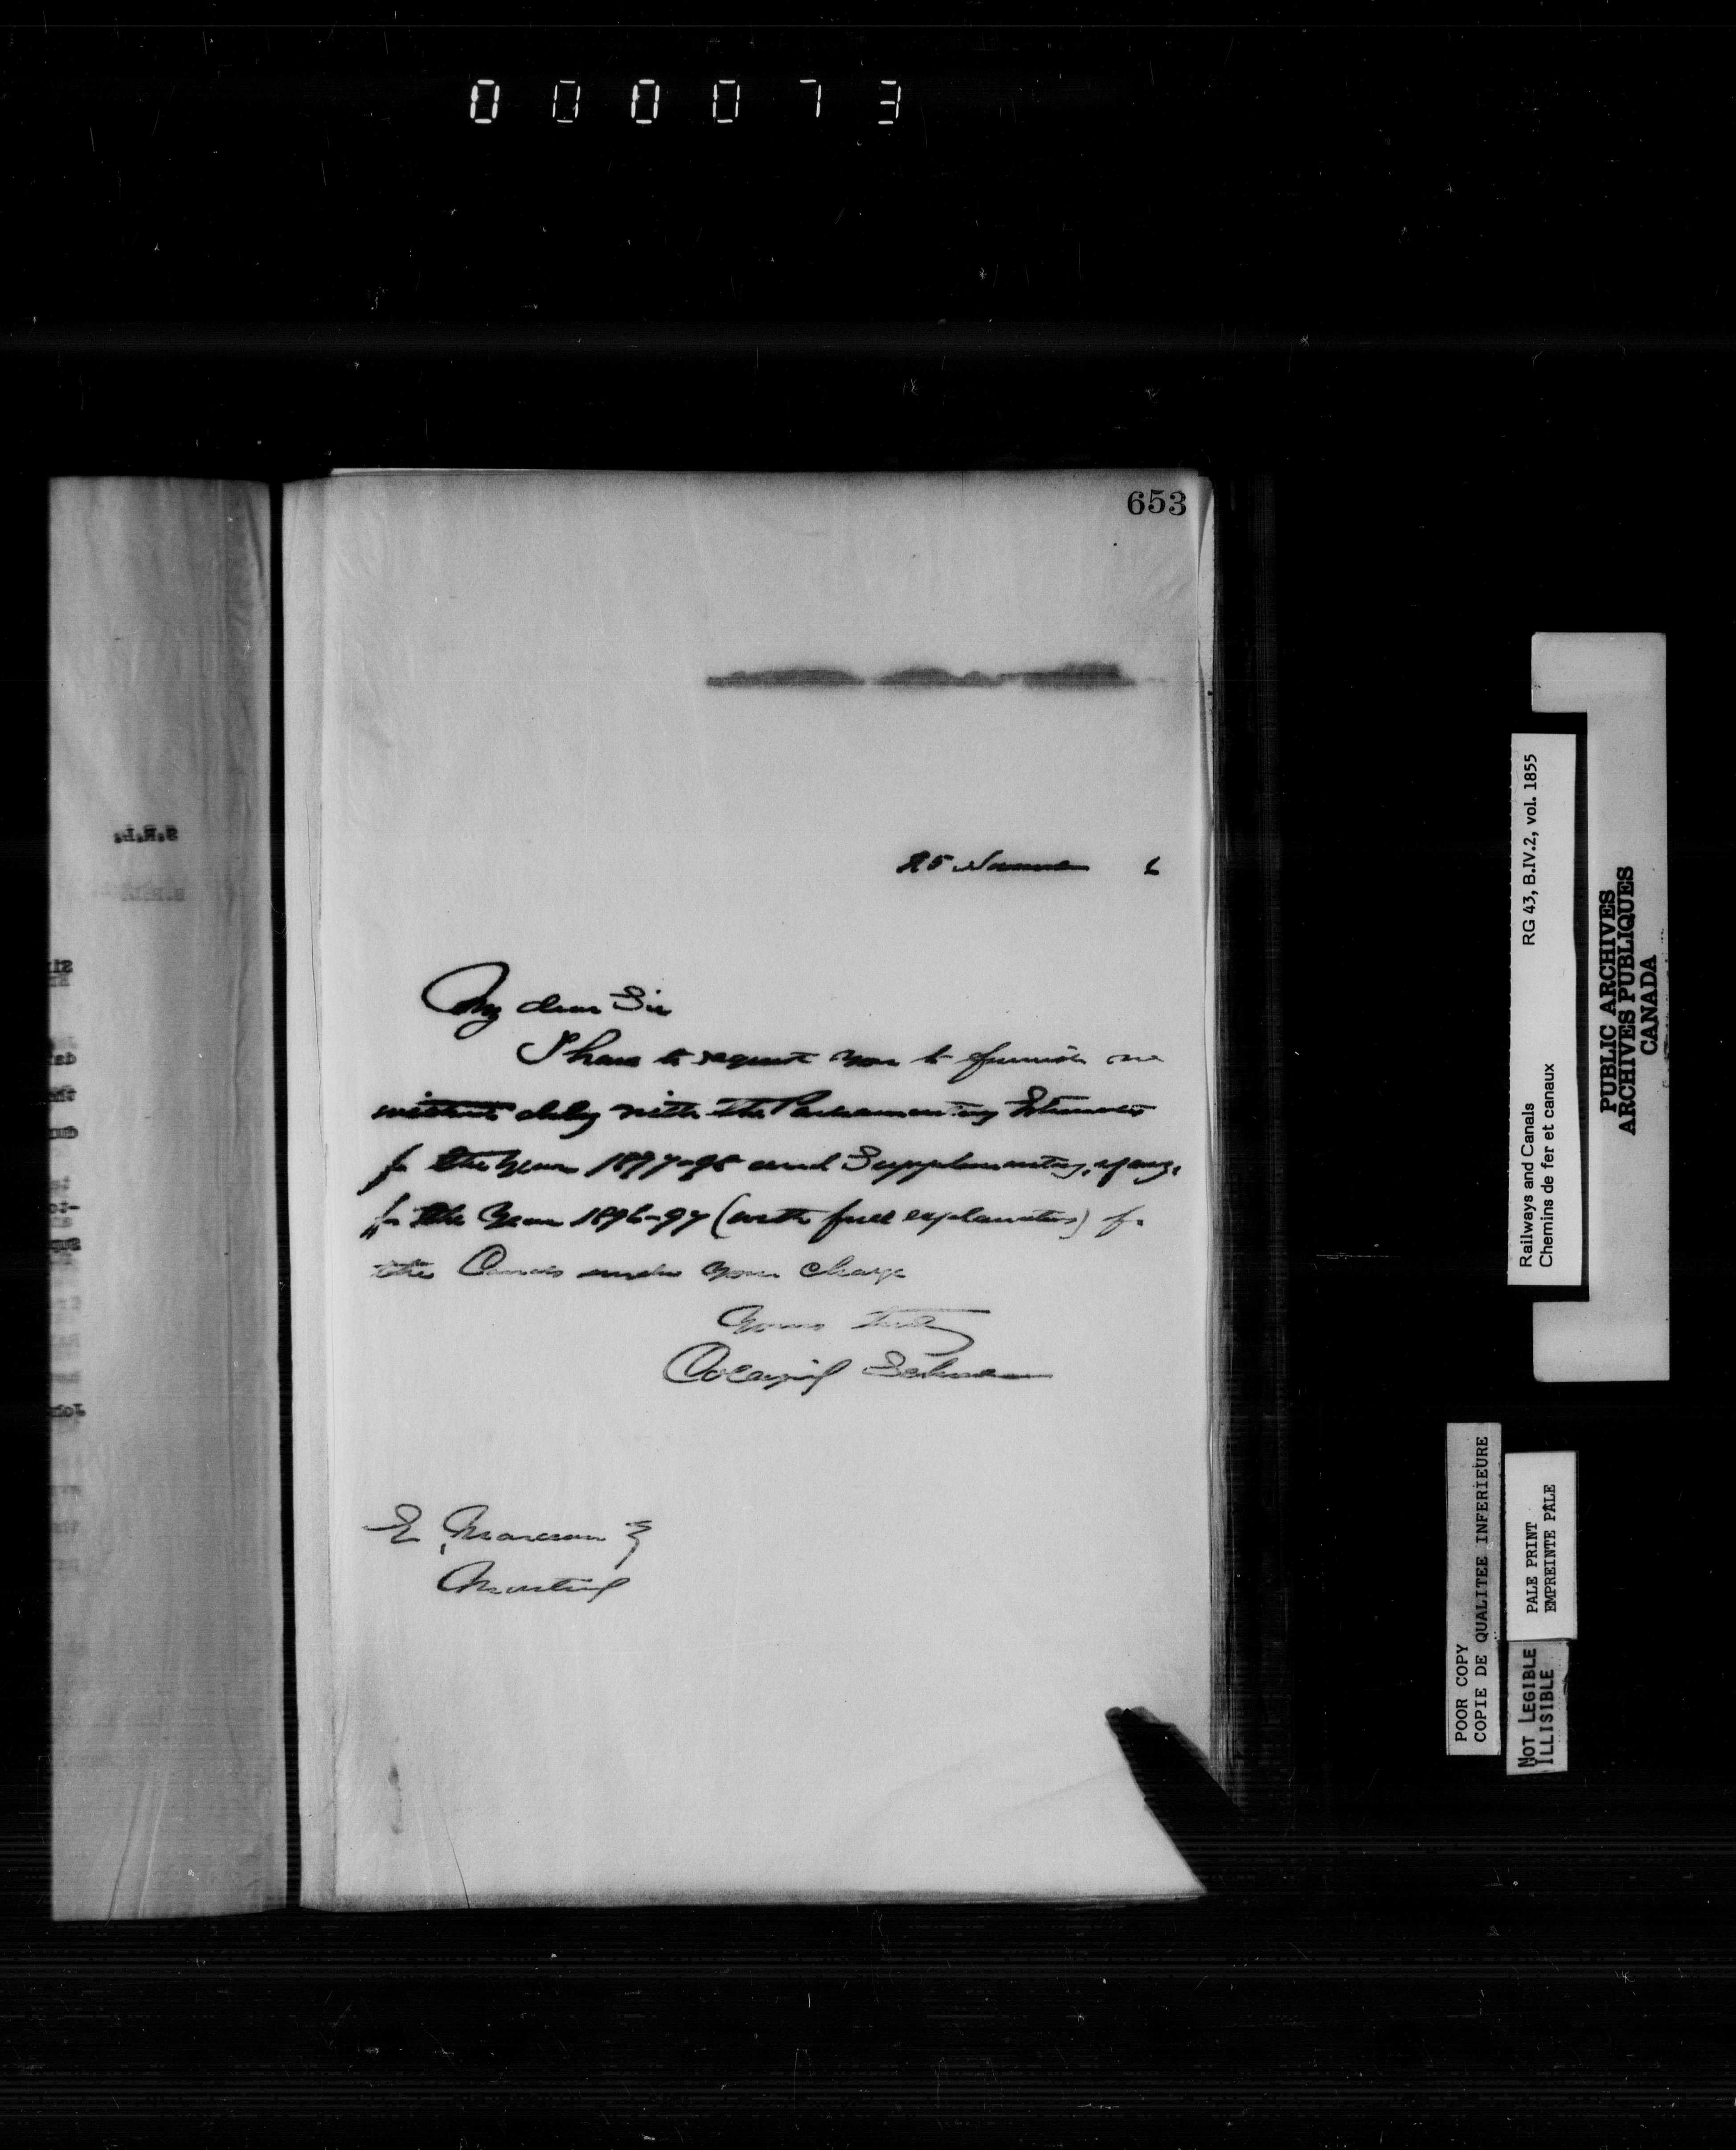 000073
653
25 November 6
My dear Sir
I have to request you to furnish me
without delay with the Parliamentary Estimates
for the year 1897-98 and Supplementary, if any,
for the Year 1896-97 (with full explanations) for
the Canals under your charge
Yours truly
Collingwood Schreiber
E. Marceau Esq
Montreal
S.R.L.
Railways and Canals RG 43, B.IV.2, vol. 1855
Chemins de fer et canaux
PUBLIC ARCHIVES
ARCHIVES PUBLIQUES
CANADA
POOR COPY
COPIE DE QUALITEE INFERIEURE
PALE PRINT
EMPREINTE PÂLE
NOT LEGIBLE
ILLISIBLE